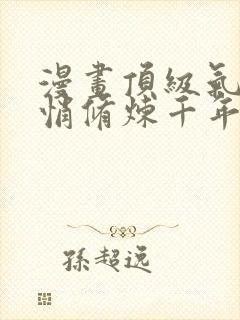 漫畫頂級氣
悄脩煉千年
孫超逸